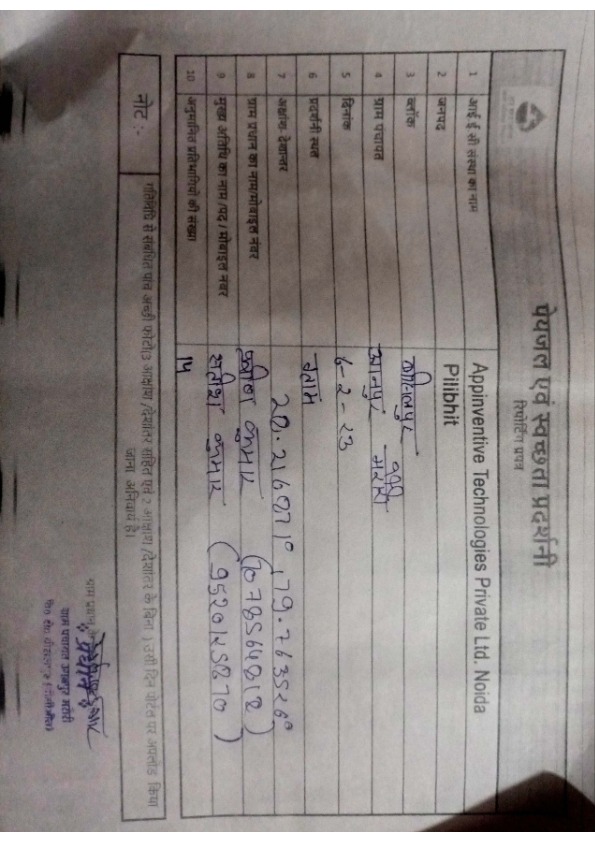 पेयजल एवं स्वच्छता प्रदर्शनी
रिपोर्टिंग प्रपत्र
1 आई ई सी संस्था का नाम Appinventive Technologies Private Ltd. Noida
2 जनपद Pilibhit
3 ब्लॉक
4 ग्राम पंचायत
5 दिनांक 6-2-23
6 प्रदर्शनी स्थल
7 अक्षांश-देशान्तर 28.216871°, 79.763526°
8 ग्राम प्रधान का नाम/मोबाइल नंबर कुमार
9 मुख्य अतिथि का नाम /पद / मोबाइल नंबर सतीश कुमार (9520125870)
10 अनुमानित प्रतिभागियों की संख्या
नोट :- गतिविधि से संबंधित पांच अच्छी फोटो(3 अक्षांश /देशांतर सहित एवं 2 अक्षांश /देशांतर के बिना ) उसी दिन पोर्टल पर अपलोड किया
जाना अनिवार्य है।
ग्राम प्रधान
प्रधान
ग्राम पंचायत